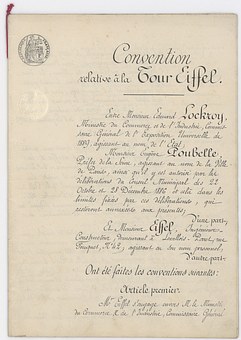 Convention
relative à la Tour Eiffel.
Entre Monsieur Edouard Lockroy,
Ministre du Commerce et de l'Industrie, Commis-
saire Général de l'Exposition Universelle de
1889, agissant au nom de l'Etat
Monsieur Eugène Poubelle,
Préfet de la Seine, agissant au nom de la Ville
de Paris, ainsi qu'il y est autorisé par les
délibérations du Conseil Municipal des 22
Octobre et 28 Décembre 1886 et cela dans les
limites fixées par ces délibérations, qui
resteront annexées aux présentes;
D'une part;
Et Monsieur Eiffel, Ingénieur-
Constructeur demeurant à Levallois-Perret, rue
Fouquet, N° 42, agissant en son nom personnel,
D'autre part;
Ont été faites les conventions suivantes:
Article premier.
Mr Eiffel s'engage envers M. le Ministre
du Commerce & de l'Industrie, Commissaire Général